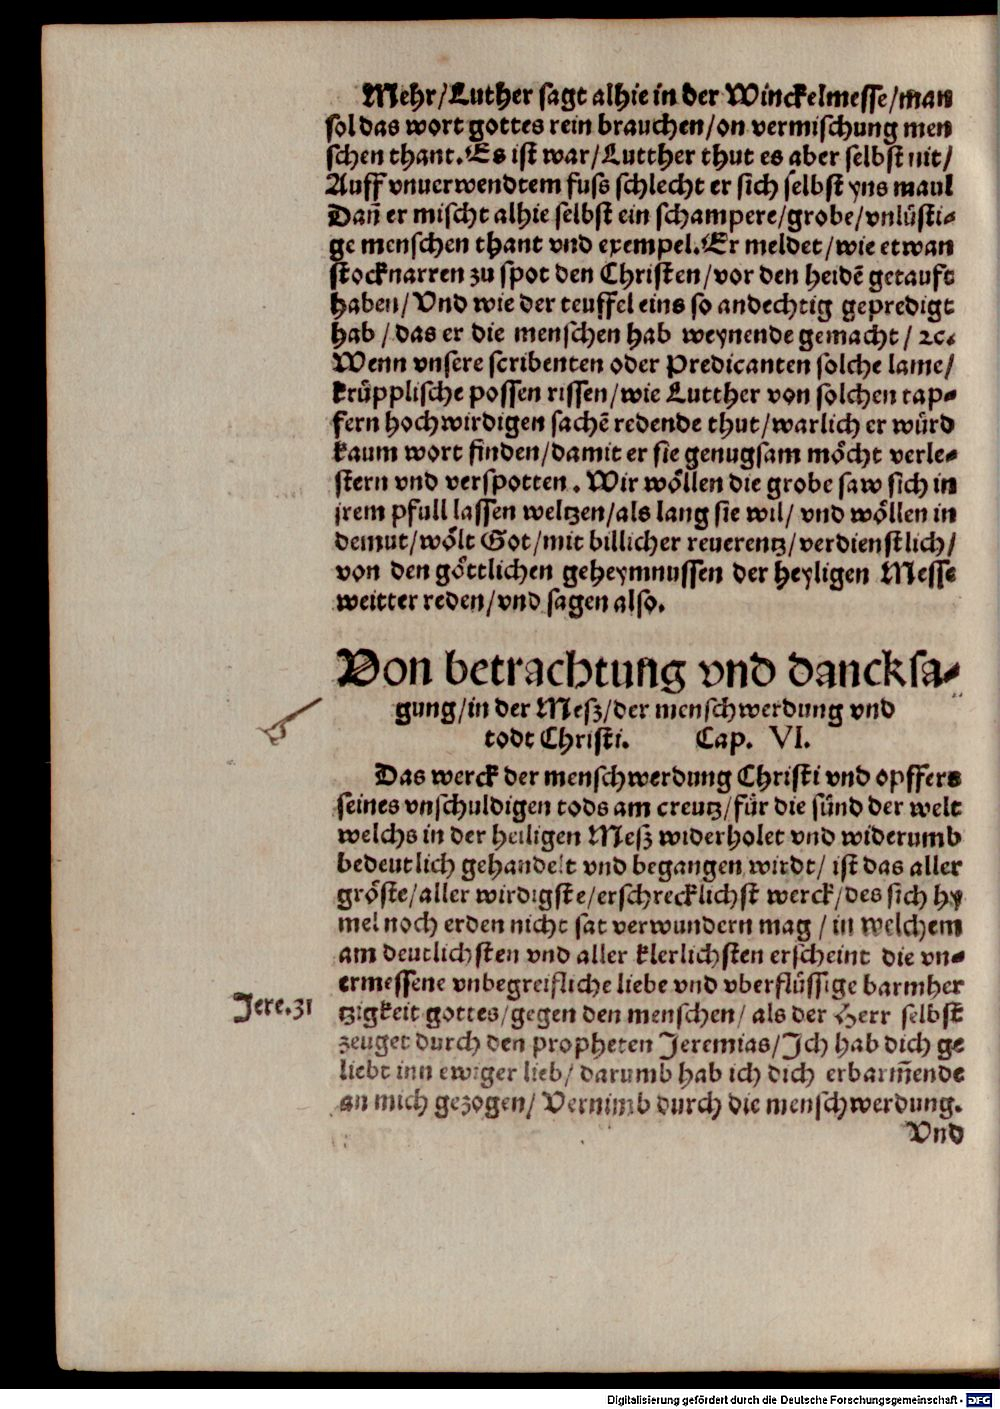 Mehr/Luther sagt alhie in der Winckelmesse/man
sol das wort gottes rein brauchen/on vermischung men
schen thant. Es ist war/Lutther thut es aber selbst nit/
Auff vnuerwendtem fuss schlecht er sich selbst yns maul
Dañ er mischt alhie selbst ein schampere/grobe/vnlüsti-
ge menschen thant vnd exempel. Er meldet/wie etwan
stocknarren zu spot den Christen/vor den heidẽ getauft
haben/Vnd wie der teuffel eins so andechtig gepredigt
hab/das er die menschen hab weynende gemacht/ ꝛc.
Wenn vnsere scribenten oder Predicanten solche lame/
krüpplische possen rissen/wie Lutther von solchen tap-
fern hochwirdigen sachẽ redende thut/warlich er würd
kaum wort finden/damit er sie genugsam möcht verle-
stern vnd verspotten. Wir wöllen die grobe saw sich in
jrem pfull lassen weltzen/als lang sie wil/ vnd wöllen in
demut/wölt Got/mit billicher reuerentz/verdienstlich/
von den göttlichen geheymnussen der heyligen Messe
weitter reden/vnd sagen also.
Von betrachtung vnd dancksa-
gung/in der Meß/der menschwerdung vnd
todt Christi. Cap. VI.
Das werck der menschwerdung Christi vnd opffers
seines vnschuldigen tods am creutz/für die sünd der welt
welchs in der heiligen Meß widerholet vnd widerumb
bedeutlich gehandelt vnd begangen wirdt/ ist das aller
gröste/aller wirdigste/erschrecklichst werck/des sich hy
mel noch erden nicht sat verwundern mag/in welchem
am deutlichsten vnd aller klerlichsten erscheint die vn-
ermessene vnbegreifliche liebe vnd vberflüssige barmher
Jere.31
tzigkeit gottes/gegen den menschen/ als der Herr selbst
zeuget durch den propheten Jeremias/Ich hab dich ge
liebt inn ewiger lieb/ darumb hab ich dich erbarm̃ende
an mich gezogen/ Vernimb durch die menschwerdung.
Vnd
Digitalisierung gefördert durch die Deutsche Forschungsgemeinschaft - DFG